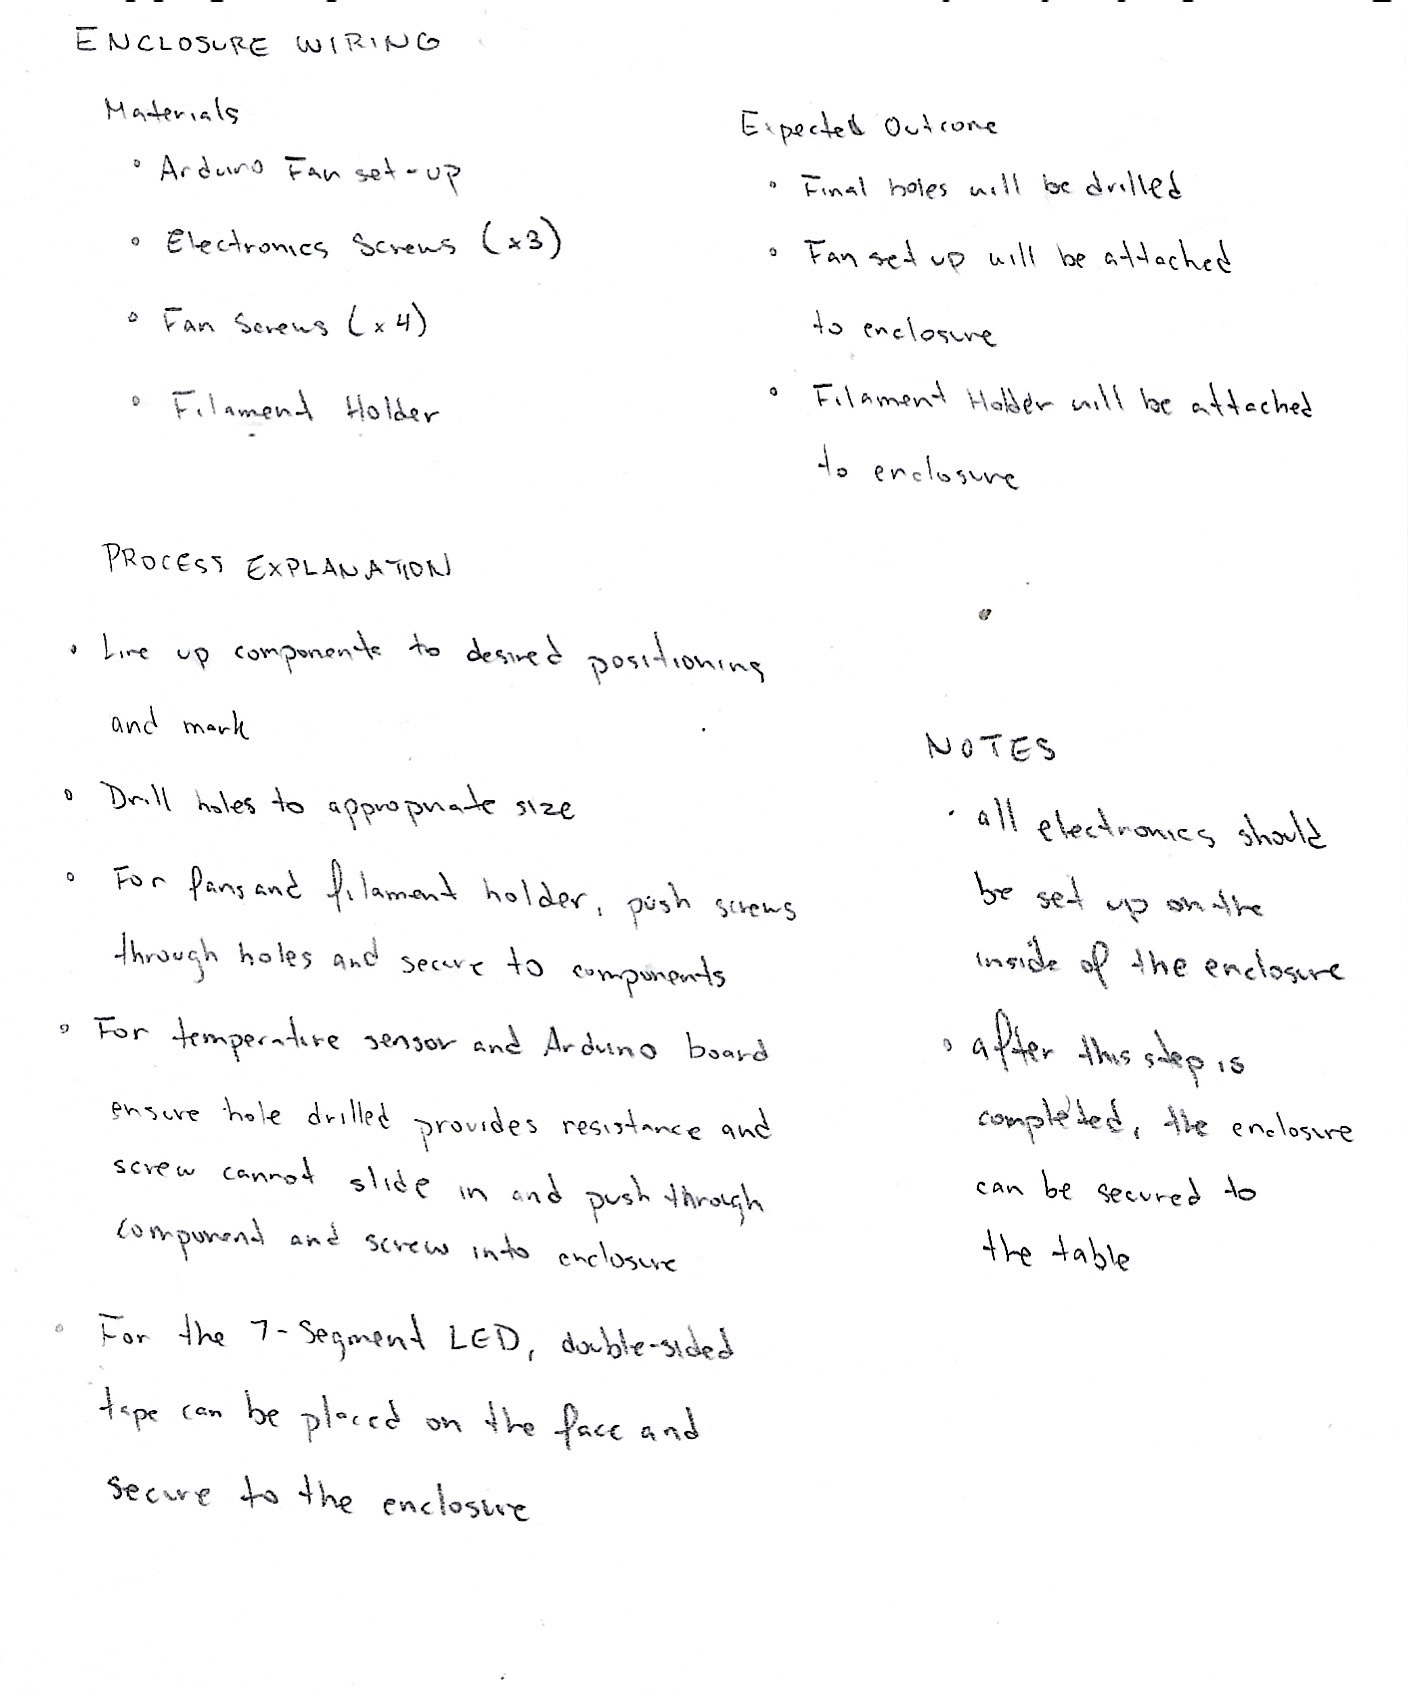 ENCLOSURE WIRING
Materials
• Arduino Fan set-up
• Electronics Screws (x3)
• Fan Screws (x4)
• Filament Holder
Expected Outcome
• Final holes will be drilled
• Fan set up will be attached
to enclosure
• Filament Holder will be attached
to enclosure
PROCESS EXPLANATION
• Line up components to desired positioning
and mark
• Drill holes to appropriate size
• For fans and filament holder, push screws
through holes and secure to components
• For temperature sensor and Arduino board
ensure hole drilled provides resistance and
screw cannot slide in and push through
component and screw into enclosure
• For the 7-Segment LED, double-sided
tape can be placed on the face and
secure to the enclosure
NOTES
• all electronics should
be set up on the
inside of the enclosure
• after this step is
completed, the enclosure
can be secured to
the table